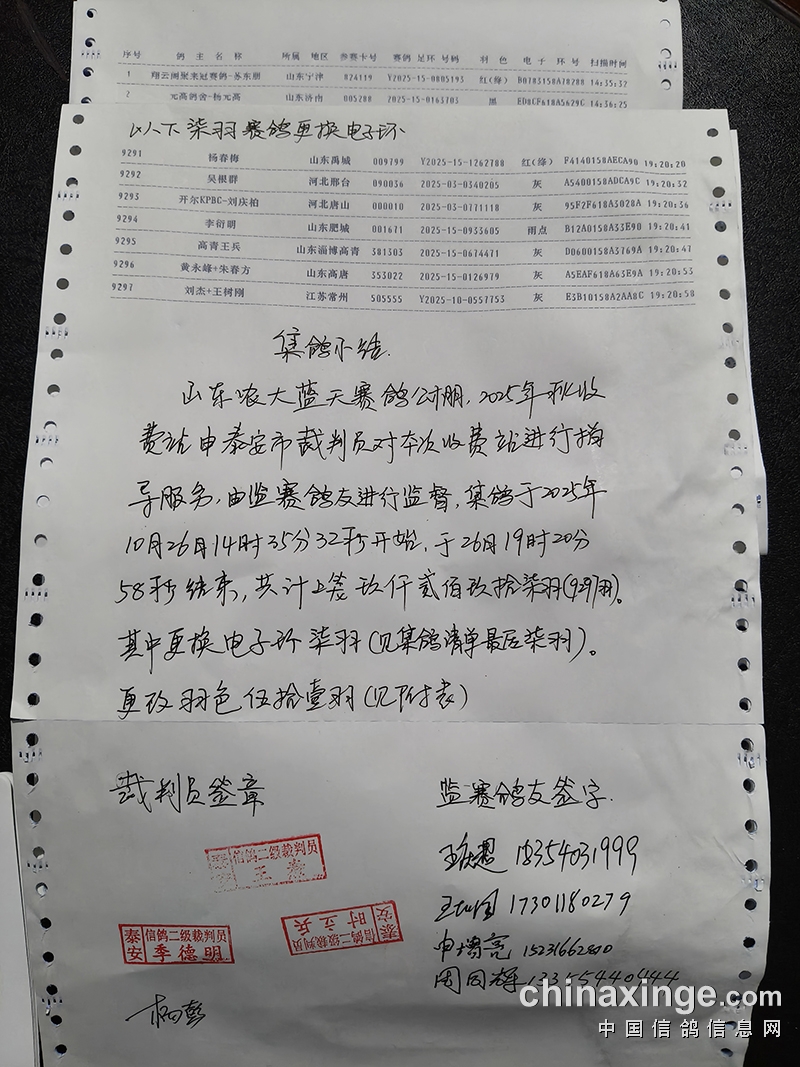 序号 鸽主名称 所属地区 参赛卡号 赛鸽足环号码 羽色 电子环号 扫描时间
1 翔云阁聚来冠赛鸽-苏东朋 山东宁津 824119 Y2025-15-0805193 红(绛) B0783158A78288 14:35:32
2 元高鸽舍-杨元高 山东济南 005288 2025-15-0163703 黑 ED8CF618A5629C 14:36:25
以下柒羽赛鸽更换电子环
9291 杨春梅 山东禹城 009799 Y2025-15-1262788 红(绛) F4140158AECA90 19:20:20
9292 吴根群 河北邢台 090036 2025-03-0340205 灰 A5400158ADCA9C 19:20:32
9293 开尔KPBC-刘庆柏 河北唐山 000010 2025-03-0771118 灰 95F2F618A3028A 19:20:36
9294 李衍明 山东肥城 001671 2025-15-0933605 雨点 B12A0158A33E90 19:20:41
9295 高青王兵 山东淄博高青 381303 2025-15-0674471 灰 D0600158A3769A 19:20:47
9296 黄永峰+朱春方 山东高唐 353022 2025-15-0126979 灰 A5EAF618A63E9A 19:20:53
9297 刘杰+王树刚 江苏常州 505555 Y2025-10-0557753 灰 E3B10158A2AA8C 19:20:58
集鸽小结.
山东农大蓝天赛鸽公棚，2025年秋收
费站由泰安市裁判员对本次收费站进行指
导服务，由监赛鸽友进行监督，集鸽于2025年
10月26日14时35分32秒开始，于26日19时20分
58秒结束，共计上笼玖仟贰佰玖拾柒羽(9297羽)。
其中更换电子环柒羽(见集鸽清单最后柒羽)。
更改羽色伍拾壹羽(见附表)
裁判员签章
监赛鸽友签字.
信鸽二级裁判员
王
18354031999
17301180279
泰安 信鸽二级裁判员
季德明
泰安 信鸽二级裁判员
时立兵
申博亮
周同辉 13355440444
杨彭
chinaxinge.com
中国信鸽信息网